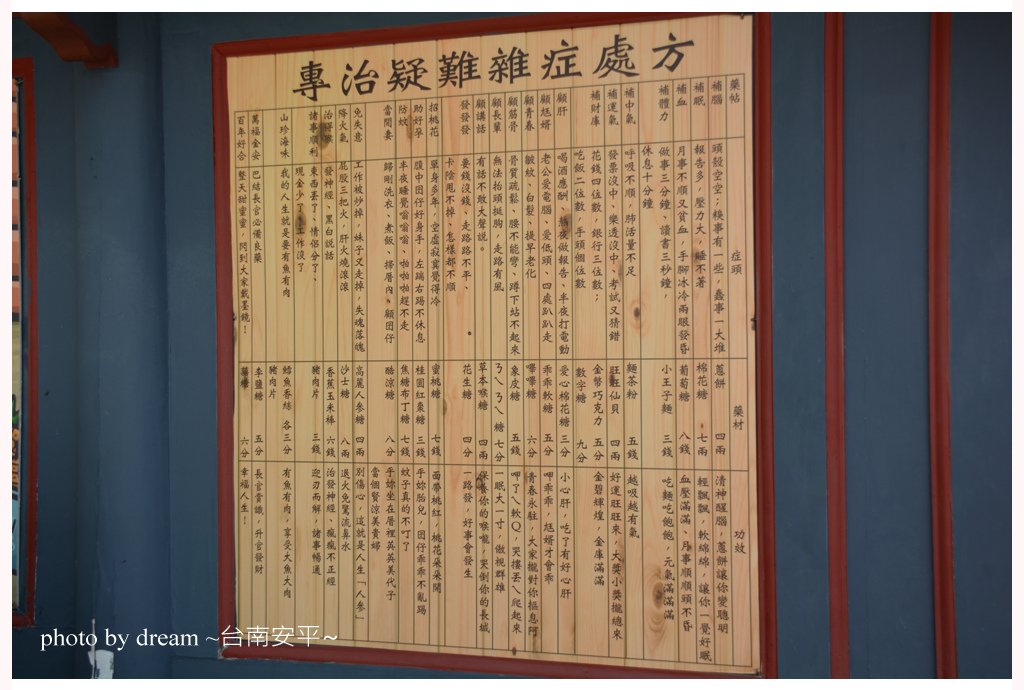 專治疑難雜症處方
藥帖 症頭 藥材 功效
補腦 頭殼空空；糗事有一些，蠢事一大堆 蔥餅 四兩 清神醒腦，蔥餅讓你變聰明
補眠 報告多，壓力大，睡不著 棉花糖 七兩 輕飄飄，軟綿綿，讓你一覺好眠
補血 月事不順又貧血，手腳冰冷兩眼發昏 葡萄糖 八錢 血壓滿滿、月事順順頭不昏
補體力 做事三分鐘、讀書三秒鐘，
休息十分鐘 小王子麵 三錢 吃麵吃飽飽，元氣滿滿滿
補中氣 呼吸不順，肺活量不足 麵茶粉 五錢 越吸越有氣
補運氣 發票沒中、樂透沒中、考試又猜錯 旺旺仙貝 四兩 好運旺旺來，大獎小獎攏總來
補財庫 花錢四位數，銀行三位數；
吃飯二位數，手頭個位數 金幣巧克力 五分 金碧輝煌，金庫滿滿
數字糖 九分
顧肝 喝酒應酬、熬夜做報告、半夜打電動 愛心棉花糖 三分 小心肝，吃了有好心肝
顧尪婿 老公愛電腦、愛低頭、四處趴趴走 乖乖軟糖 五分 呷乖乖，尪婿才會乖
顧青春 皺紋、白髮、提早老化 嗶嗶糖 六分 青春永駐，大家攏對你摳息阿
顧筋骨 骨質疏鬆、腰不能彎、蹲下站不起來 象皮糖 五錢 呷了ㄟ軟Q，哭摟丟ㄟ爬起來
顧長輩 無法抬頭挺胸，走路有風 ㄋㄟㄋㄟ糖 七分 一眠大一寸，傲視群雄
顧講話 有話不敢大聲說。 草本喉糖 四兩 保養你的喉嚨，哭倒你的長城
發發發 要錢沒錢、走路路不平、
卡陰甩不掉、怎樣都不順。 花生糖 四分 一路發，好事會發生
招桃花 單身多年，空虛寂寞覺得冷 蜜桃糖 七錢 面帶桃紅，桃花朵朵開
助好孕 腹中囝仔好身手，左踹右踢不休息 桂圓紅棗糖 三錢 乎妳胎兒，囝仔乖乖不亂踢
防蚊 半夜睡覺嗡嗡嗡，啪啪啪趕不走 焦糖布丁糖 七錢 蚊子真的不叮了
當閒妻 歸剛洗衣、煮飯、掃厝內、顧囝仔 酷涼糖 八分 乎妳坐在厝裡英英美代子
當個賢涼美貴婦
免失意 工作被炒掉，妹子又走掉，失魂落魄 高麗人參糖 四兩 別傷心，這就是人生「人參」
降火氣 屁股三把火，肝火燒滾滾 沙士糖 八兩 退火免驚流鼻水
治發神經、黑白說話 香蕉玉米棒 六錢 治發神經、瘋瘋不正經
諸事順利 東西丟了、情侶分了、
現金少了、工作沒了 豬肉片 三錢 迎刃而解，諸事暢通
山珍海味 我的人生就是要有魚有肉 鱈魚香絲 各三分 有魚有肉，享受大魚大肉
豬肉片
萬福金安 巴結長官必備良藥 李鹽糖 五分 長官賞識，升官發財
百年好合 整天甜蜜蜜，閃到大家戴墨鏡！ 六分 幸福人生！
photo by dream ~台南安平~